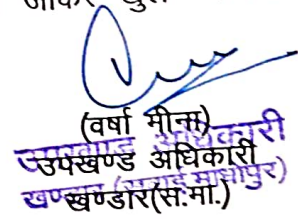 (वर्षा मीना)
उपखण्ड अधिकारी
खण्डार(स.मा.)
उपखण्ड अधिकारी
खण्डार (सवाई माधोपुर)